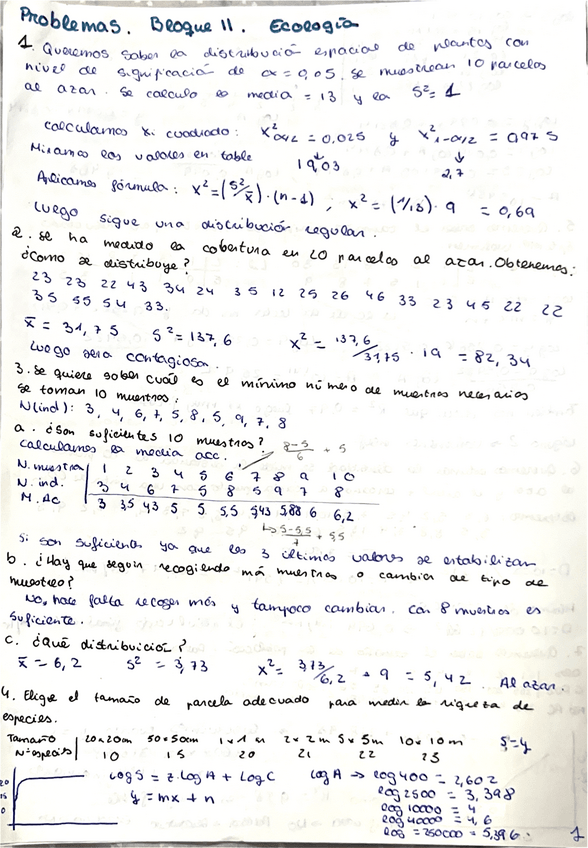 Problemas. Bloque 11. Ecología
1. Queremos saber la distribución espacial de plantas con
nivel de significación de α = 0,05. Se muestrean 10 parcelas
al azar. Se calcula la media = 13 y la S² = 1
Calculamos Xi cuadrado: X²α/2 = 0,025 y X²1-α/2 = 0,975
Miramos los valores en tabla 19,03 2,7
Aplicamos fórmula: X² = (S²/x̄)·(n-1), X² = (1/13)·9 = 0,69
Luego sigue una distribución regular.
2. Se ha medido la cobertura en 20 parcelas al azar. Obtenemos:
¿Como se distribuye?
23 23 22 43 34 24 35 12 25 26 46 33 23 45 22 22
35 55 54 33.
x̄ = 31,75 S² = 137,6 X² = 137,6/31,75 · 19 = 82,34
Luego sera contagiosa.
3. Se quiere saber cuál es el mínimo número de muestras necesarias
Se toman 10 muestras:
N(ind): 3, 4, 6, 7, 5, 8, 5, 9, 7, 8
a. ¿Son suficientes 10 muestras?
Calculamos la media acc. 8-5/6 + 5
N. muestra 1 2 3 4 5 6 7 8 9 10
N. ind. 3 4 6 7 5 8 5 9 7 8
M. Ac 3 3,5 4,3 5 5 5,5 5,43 5,88 6 6,2
5-5,5/7 + 5,5
Si son suficientes ya que los 3 últimos valores se estabilizan
b. ¿Hay que seguir recogiendo más muestras o cambiar de tipo de
muestreo?
No, hace falta recoger más y tampoco cambiar. Con 8 muestras es
suficiente.
c. ¿Qué distribuición?
x̄ = 6,2 S² = 3,73 X² = 3,73/6,2 · 9 = 5,42 Al azar.
4. Elige el tamaño de parcela adecuado para medir la riqueza de
especies.
Tamaño 20x20cm 50x50cm 1x1m 2x2m 5x5m 10x10m
Nº especies 10 15 20 21 22 23
log S = z·log A + log C
y = mx + n
log A → log 400 = 2,602
log 2500 = 3,398
log 10000 = 4
log 40000 = 4,6
log = 250000 = 5,396.
1